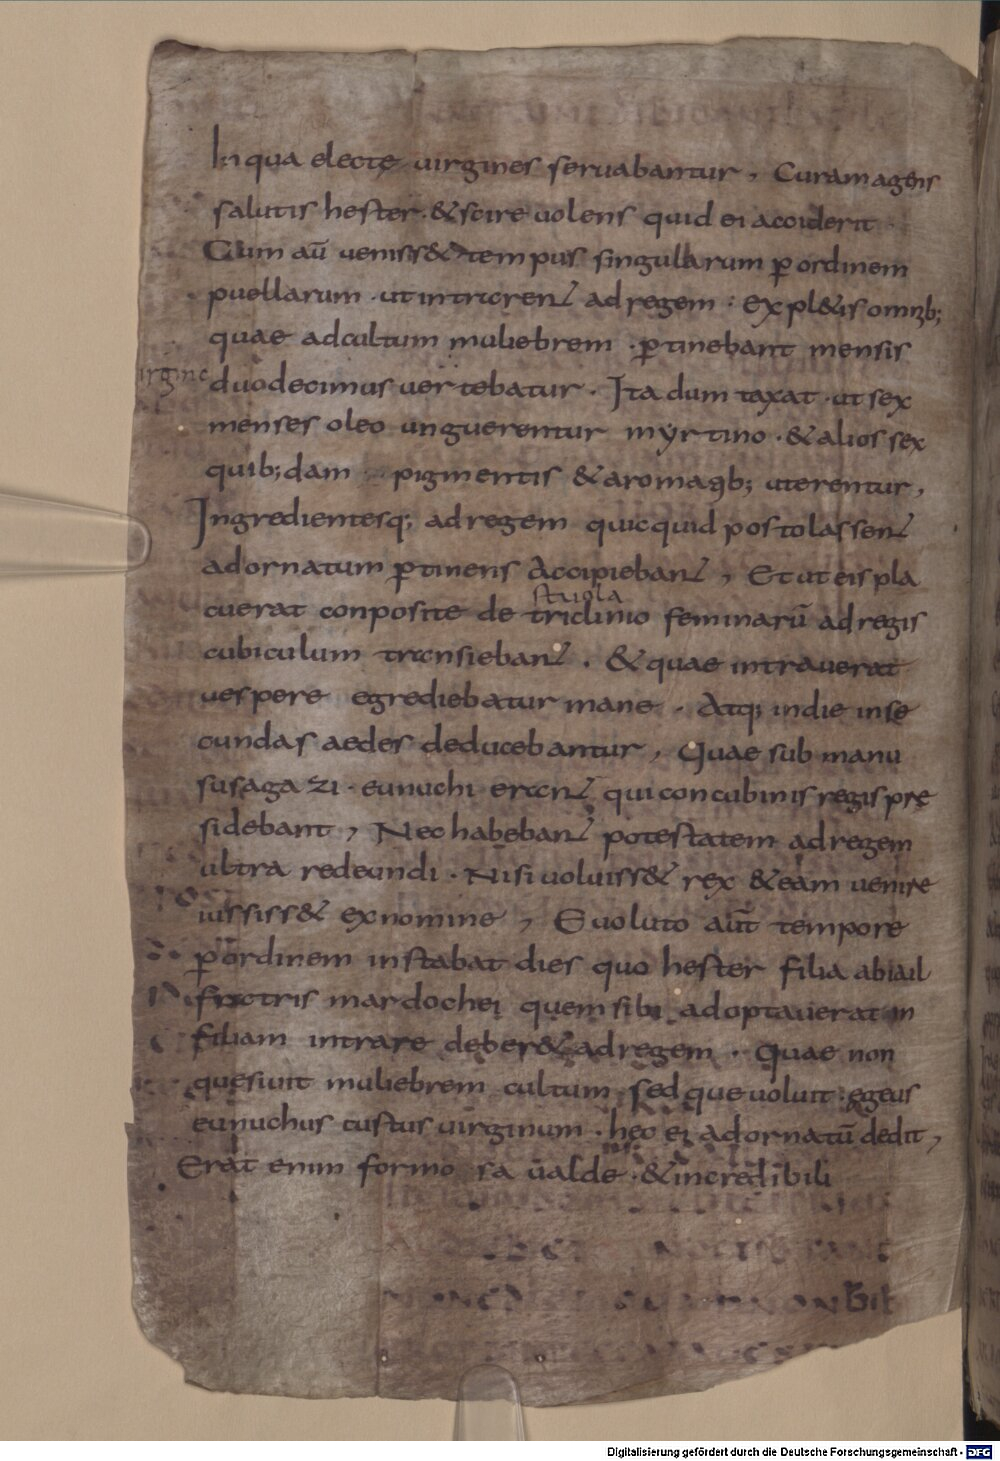 In qua electę uirgines seruabantur, Curam agens
salutis hester · & scire uolens quid ei acciderit
Cum aū uenisset tempus singularum ꝑ ordinem
puellarum · ut intrarent ad regem : expl&is omīb;
quae ad cultum muliebrem · ꝑtinebant mensis
irgine duodecimus uertebatur · Ita dum taxat · ut sex
menses oleo unguerentur myrtino · & alios sex
quib;dam pigmentis & aromatib; uterentur,
Ingredientesq; ad regem quicquid postolassent
ad ornatum ꝑtinens Accipiebant, Et ut eis pla
stuola
cuerat conposite de triclinio feminarū ad regis
cubiculum transiebant · & quae intrauerat
uespere egrediebatur mane · Atq; indie inse
cundas aedes deducebantur, Quae sub manu
susagazi · eunuchi erant qui concubinis regis prę
sidebant, Nec habebant potestatem ad regem
ultra redeundi · Nisi uoluiss& rex & eam uenire
iussiss& ex nomine, Euoluto aūt tempore
ꝑ ordinem instabat dies quo hester filia abiail
fratris mardochei quem sibi adoptauerat in
filiam intrare deber& ad regem · Quae non
quesiuit muliebrem cultum sed que uoluit · egeus
eunuchus custus uirginum · hec ei ad ornatū dedit,
Erat enim formo sa ualde · & incredibili
Digitalisierung gefördert durch die Deutsche Forschungsgemeinschaft - DFG